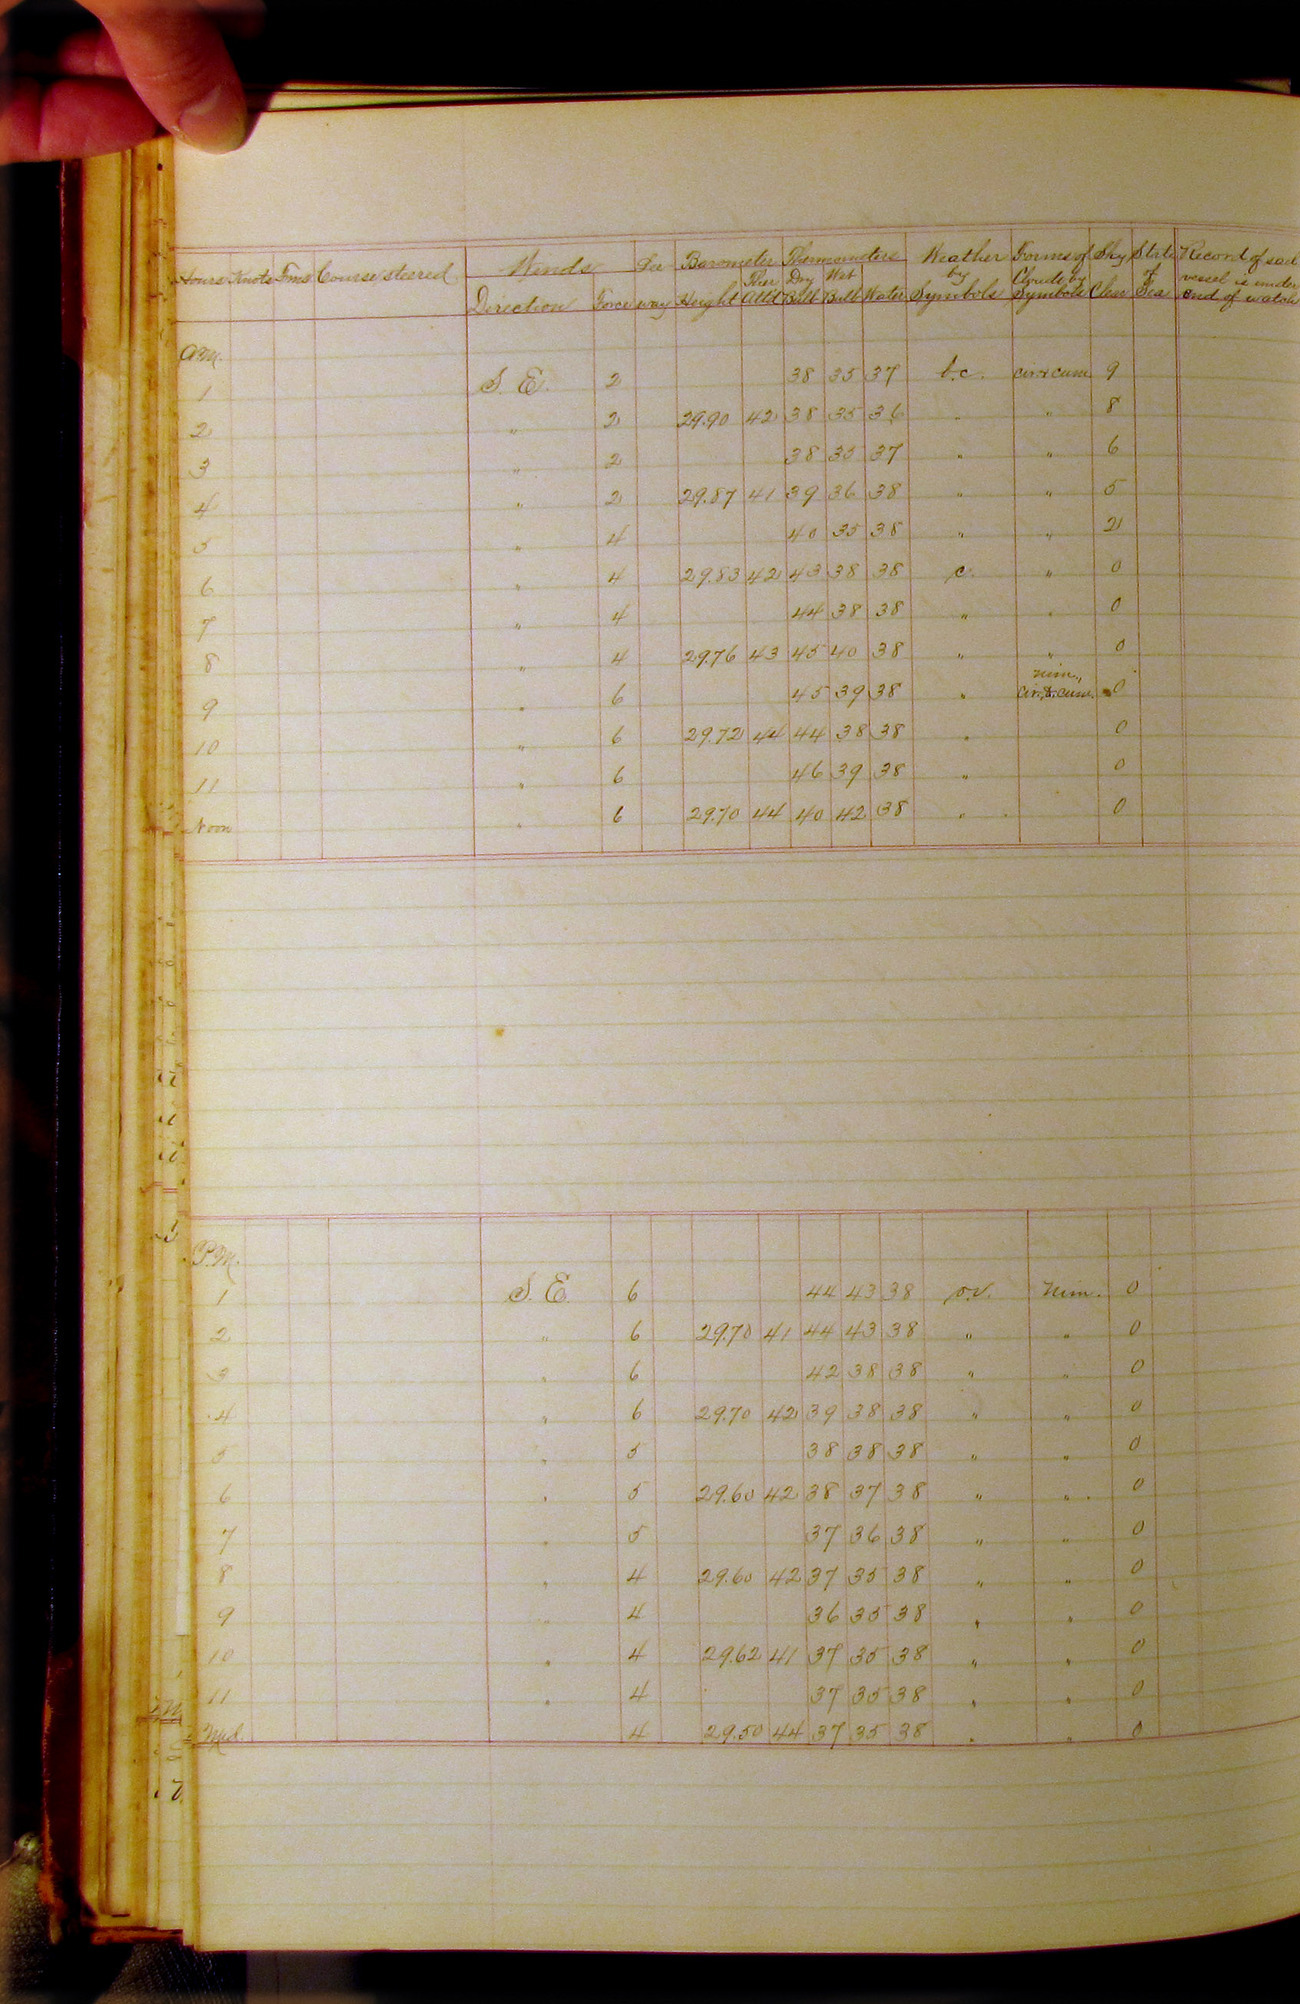 Hours Knots Fms Course steered Winds Lee Barometer Thermometers Weather Forms of Sky State Record of sail
Direction Force way Height Ther Att'd Dry Bulb Wet Bulb Water by Symbols Clouds by Symbols Clear of Sea vessel is under
end of watch
A.M.
1 S. E. 2 38 35 37 b.c. cir. & cum 9
2 " 2 29.90 42 38 35 36 " " 8
3 " 2 38 35 37 " " 6
4 " 2 29.87 41 39 36 38 " " 5
5 " 4 40 35 38 " " 2
6 " 4 29.83 42 43 38 38 c. " 0
7 " 4 44 38 38 " " 0
8 " 4 29.76 43 45 40 38 " " 0
nim.,
9 " 6 45 39 38 " cir. & cum. 0
10 " 6 29.72 44 44 38 38 " 0
11 " 6 46 39 38 " 0
Noon " 6 29.70 44 40 42 38 " 0
P.M.
1 S. E. 6 44 43 38 nim. 0
2 " 6 29.70 41 44 43 38 " " 0
3 " 6 42 38 38 " " 0
4 " 6 29.70 42 39 38 38 " " 0
5 " 5 38 38 38 " " 0
6 " 5 29.60 42 38 37 38 " " 0
7 " 5 37 36 38 " " 0
8 " 4 29.60 42 37 35 38 " " 0
9 " 4 36 35 38 " " 0
10 " 4 29.62 41 37 35 38 " " 0
11 " 4 37 35 38 " " 0
Mid. 4 29.50 44 37 35 38 " " 0